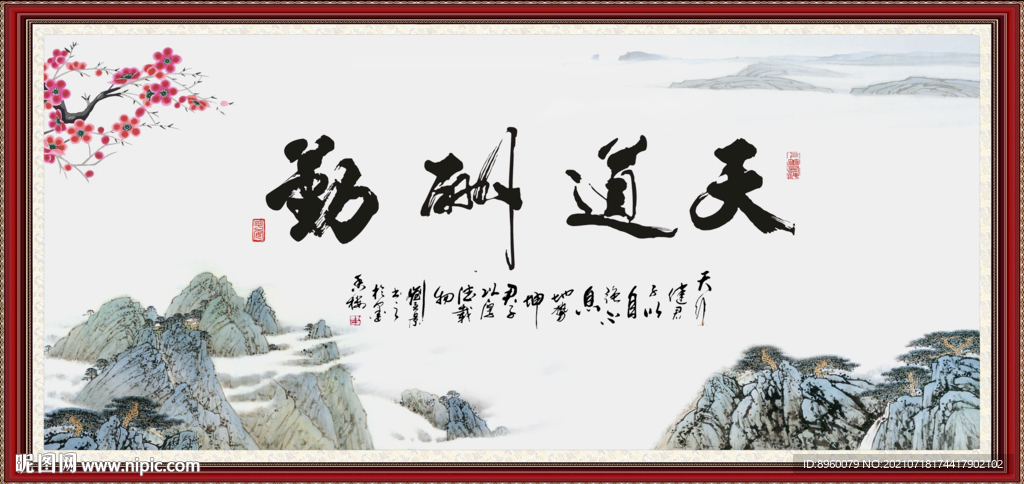 天道酬勤
天行
健君
子以
自
強不
息
地勢
坤
君子
以厚
德載
物
昵图网 www.nipic.com
ID:8960079 NO:20210718174417902102